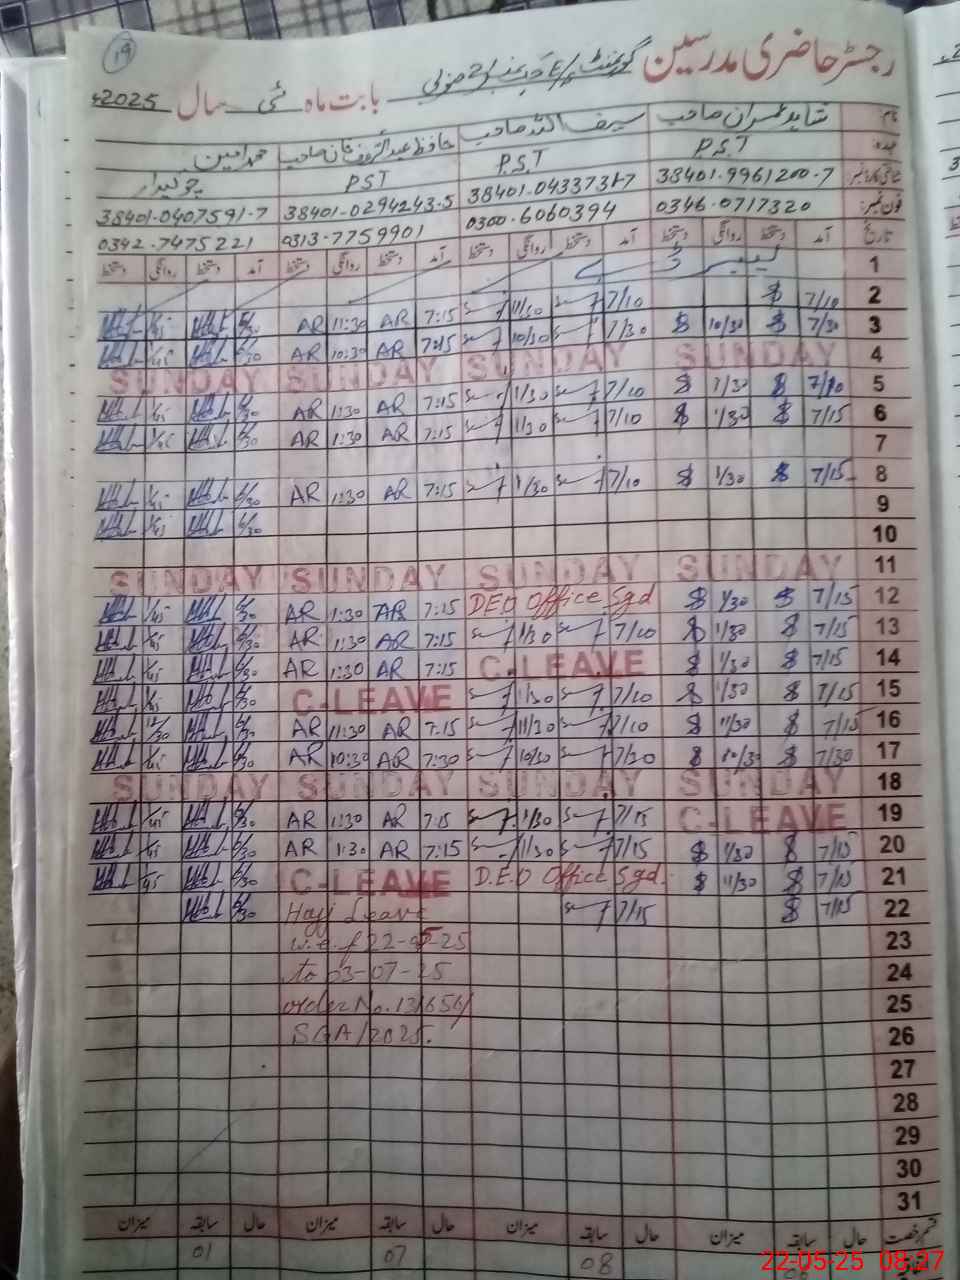 19
رجسٹر حاضری مدرسین گورنمنٹ
بابت ماہ مئی سال 2025ء
نام: شاہد عمران صاحب سیف اللہ صاحب حافظ عبدالرؤف خان صاحب محمد امین
عہدہ: P.S.T P.S.T PST چوکیدار
38401-9961200-7 38401-0433731-7 38401-0294243-5 38401-0407591-7
فون نمبر: 0346-0717320 0300-6060394 0313-7759901 0342-7475221
تاریخ آمد دستخط روانگی دستخط آمد دستخط روانگی دستخط آمد دستخط روانگی دستخط آمد دستخط روانگی دستخط
1 لیبر ڈے
2 7/10 7/10 11/30 7:15 AR 11:30 AR 6/30 1/45
3 7/30 10/30 7/30 10/30 7:15 AR 10:30 AR 6/30 1/45
4 SUNDAY SUNDAY SUNDAY SUNDAY
5 7/10 1/30 7/10 1/30 7:15 AR 1:30 AR 6/30 1/45
6 7/15 1/30 7/10 1/30 7:15 AR 1:30 AR 6/30 1/45
7
8 7/15 1/30 7/10 1/30 7:15 AR 1:30 AR 6/30 1/45
9 6/30 1/45
10
11 SUNDAY SUNDAY SUNDAY SUNDAY
12 7/15 1/30 D.E.O Office Sgd 7:15 AR 1:30 AR 6/30 1/45
13 7/15 1/30 7/10 1/30 7:15 AR 1:30 AR 6/30 1/45
14 7/15 1/30 C-LEAVE 7:15 AR 1:30 AR 6/30 1/45
15 7/15 1/30 7/10 1/30 C-LEAVE 6/30 1/45
16 7/15 11/30 7/10 11/30 7:15 AR 11:30 AR 6/30 12/30
17 7/30 10/30 7/30 10/30 7:30 AR 10:30 AR 6/30 1/45
18 SUNDAY SUNDAY SUNDAY SUNDAY
19 C-LEAVE 7/15 1/30 7:15 AR 1:30 AR 6/30 1/45
20 7/15 1/30 7/15 1/30 7:15 AR 1:30 AR 6/30 1/45
21 7/15 11/30 D.E.O Office Sgd. C-LEAVE 6/30 1/45
22 7/15 7/15 Hajj Leave 6/30
23 w.e.f 22-5-25
24 to 03-07-25
25 order No. 131656/
26 SGA/2025.
27
28
29
30
31
قسم رخصت حال سابقہ میزان حال سابقہ میزان حال سابقہ میزان حال سابقہ میزان
08 07 01
22-05-25 08:27